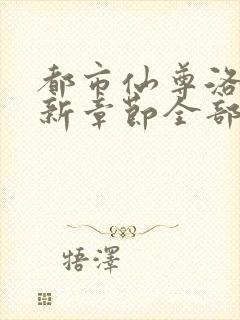 都市仙尊洛
新章节全部
牾澤